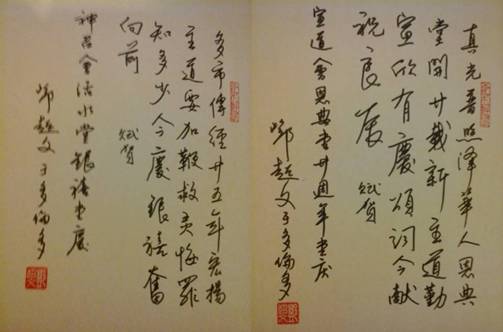 真光普照澤華人恩典
堂開廿載新主道勤
宣欣有慶頌詞今献
祝良辰 賦賀
宣道會恩典堂廿週年堂慶
鄧超文于多倫多
多市傳經廿五年宏揚
主道要加鞭救灵悔罪
知多少今慶銀禧奮
向前 賦賀
神召會活水堂銀禧堂慶
鄧超文于多倫多